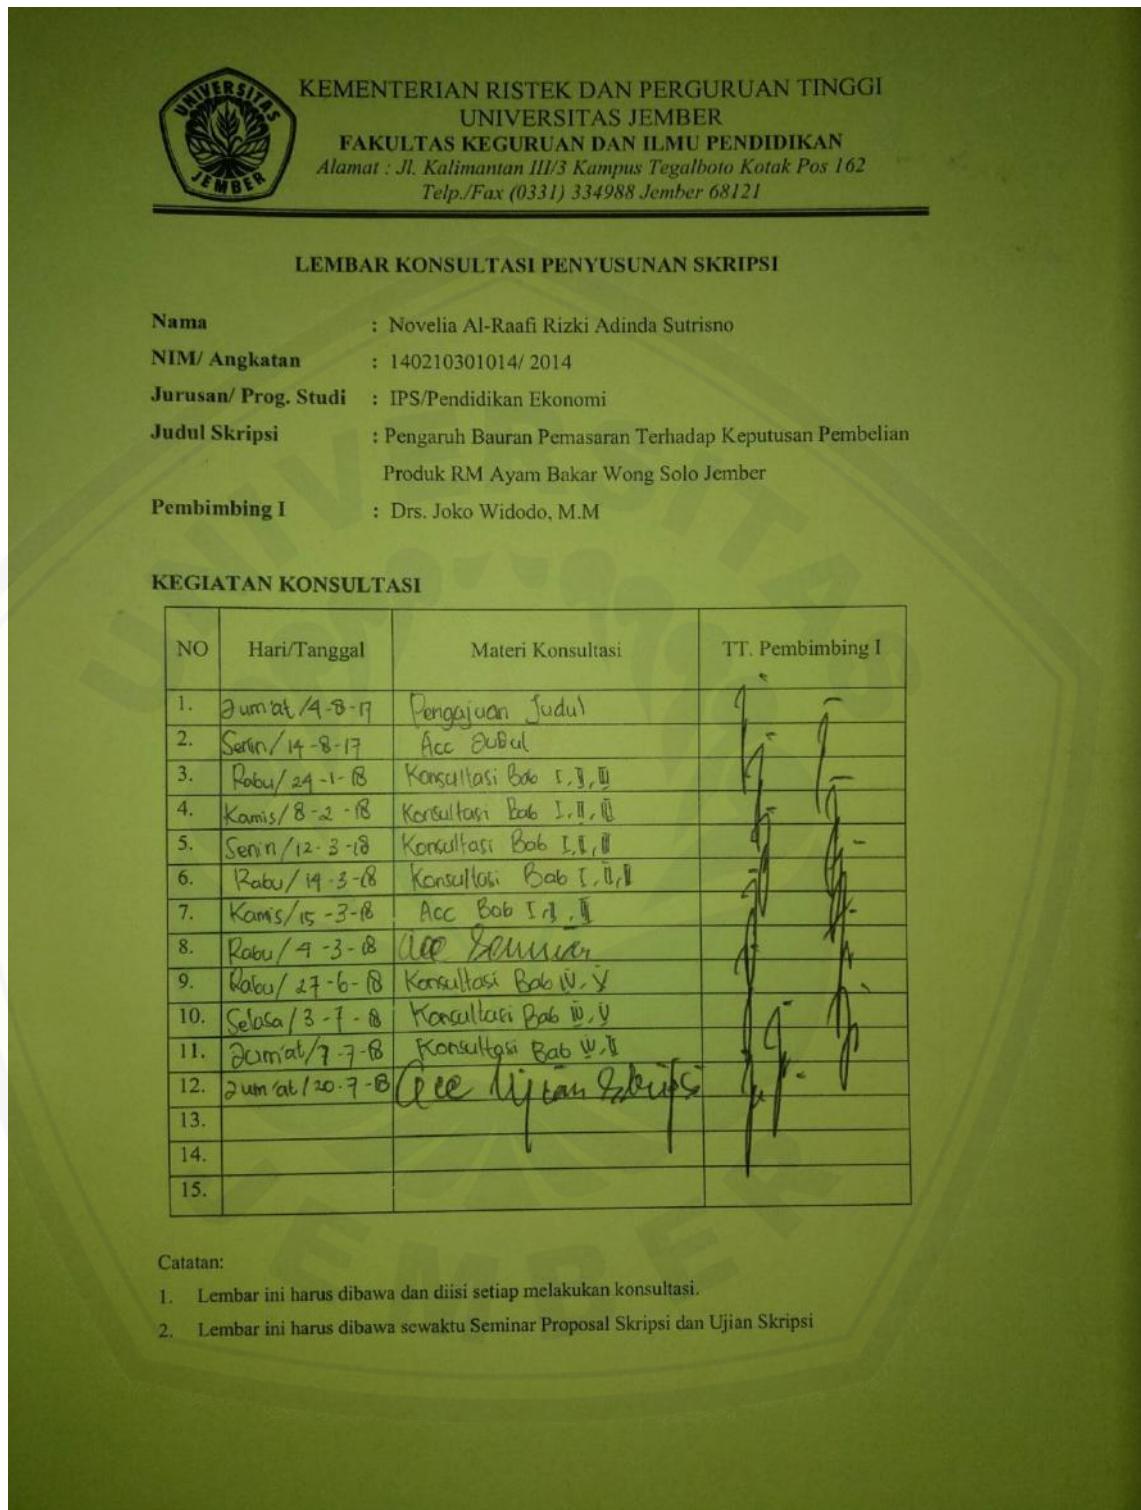 UNIVERSITAS JEMBER
KEMENTERIAN RISTEK DAN PERGURUAN TINGGI
UNIVERSITAS JEMBER
FAKULTAS KEGURUAN DAN ILMU PENDIDIKAN
Alamat : Jl. Kalimantan III/3 Kampus Tegalboto Kotak Pos 162
Telp./Fax (0331) 334988 Jember 68121
LEMBAR KONSULTASI PENYUSUNAN SKRIPSI
Nama : Novelia Al-Raafi Rizki Adinda Sutrisno
NIM/ Angkatan : 140210301014/ 2014
Jurusan/ Prog. Studi : IPS/Pendidikan Ekonomi
Judul Skripsi : Pengaruh Bauran Pemasaran Terhadap Keputusan Pembelian
Produk RM Ayam Bakar Wong Solo Jember
Pembimbing I : Drs. Joko Widodo, M.M
KEGIATAN KONSULTASI
NO Hari/Tanggal Materi Konsultasi TT. Pembimbing I
1. Jum'at /4-8-17 Pengajuan Judul
2. Senin/ 14-8-17 Acc Judul
3. Rabu/ 24-1-18 Konsultasi Bab I, II, III
4. Kamis/ 8-2-18 Konsultasi Bab I, II, III
5. Senin /12-3-18 Konsultasi Bab I, II, III
6. Rabu/ 14-3-18 Konsultasi Bab I, II, III
7. Kamis/ 15-3-18 Acc Bab I, II, III
8. Rabu/ 4-3-18 acc Seminar
9. Rabu/ 27-6-18 Konsultasi Bab IV, V
10. Selasa/ 3-7-18 Konsultasi Bab IV, V
11. Jum'at/ 7-7-18 Konsultasi Bab IV, V
12. Jum'at /20-7-18 acc Ujian Skripsi
13.
14.
15.
Catatan:
1. Lembar ini harus dibawa dan diisi setiap melakukan konsultasi.
2. Lembar ini harus dibawa sewaktu Seminar Proposal Skripsi dan Ujian Skripsi